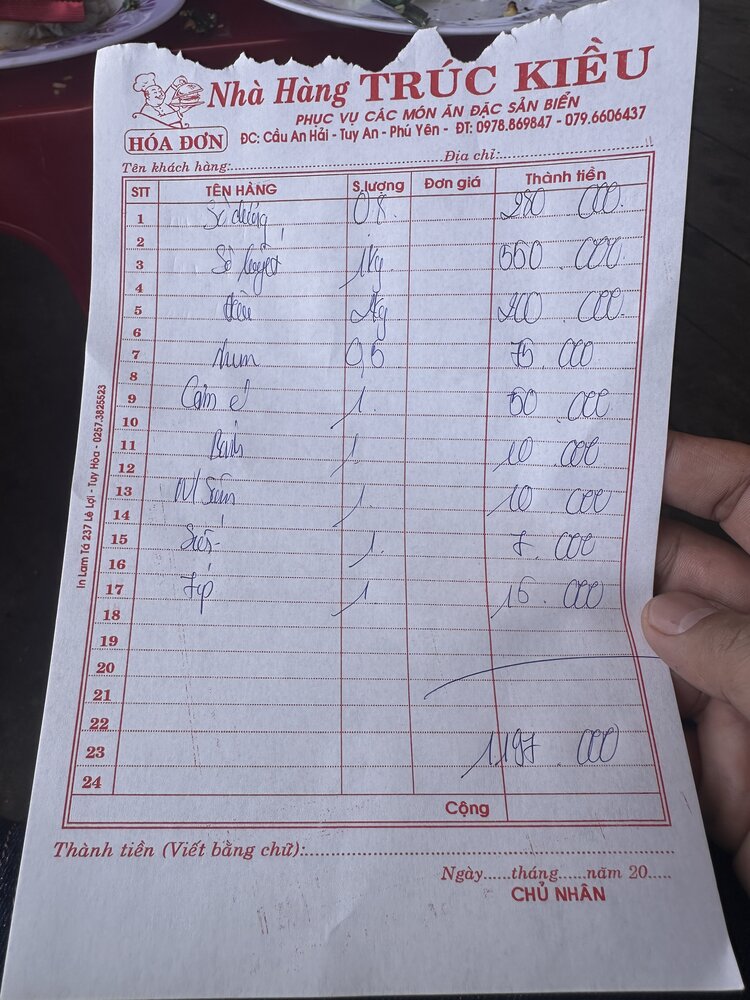 Nhà Hàng TRÚC KIỀU
PHỤC VỤ CÁC MÓN ĂN ĐẶC SẢN BIỂN
HÓA ĐƠN
ĐC: Cầu An Hải - Tuy An - Phú Yên - ĐT: 0978.869847 - 079.6606437
Tên khách hàng: Địa chỉ:
STT TÊN HÀNG S.lượng Đơn giá Thành tiền
1 0,8 280.000
2
3 Sò huyết 1kg 550.000
4
5 Hàu 2kg 200.000
6
7 Nhum 0,5 75.000
8
9 1 50.000
10
11 Bánh 1 10.000
12
13 1 10.000
14
15 1 7.000
16
17 1 15.000
18
19
20
21
22
23 1197.000
24
Cộng
Thành tiền (Viết bằng chữ):
Ngày......tháng......năm 20.....
CHỦ NHÂN
In Lam Tá 237 Lê Lợi - Tuy Hòa - 0257.3825523